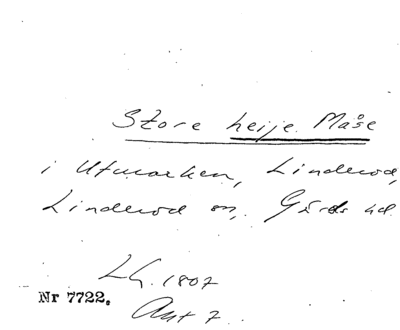 Store heije Måse
i Utmarken, Linderöd,
Linderöd sn, Gärds hd.
LG. 1807
Akt 7
Nr 7722.